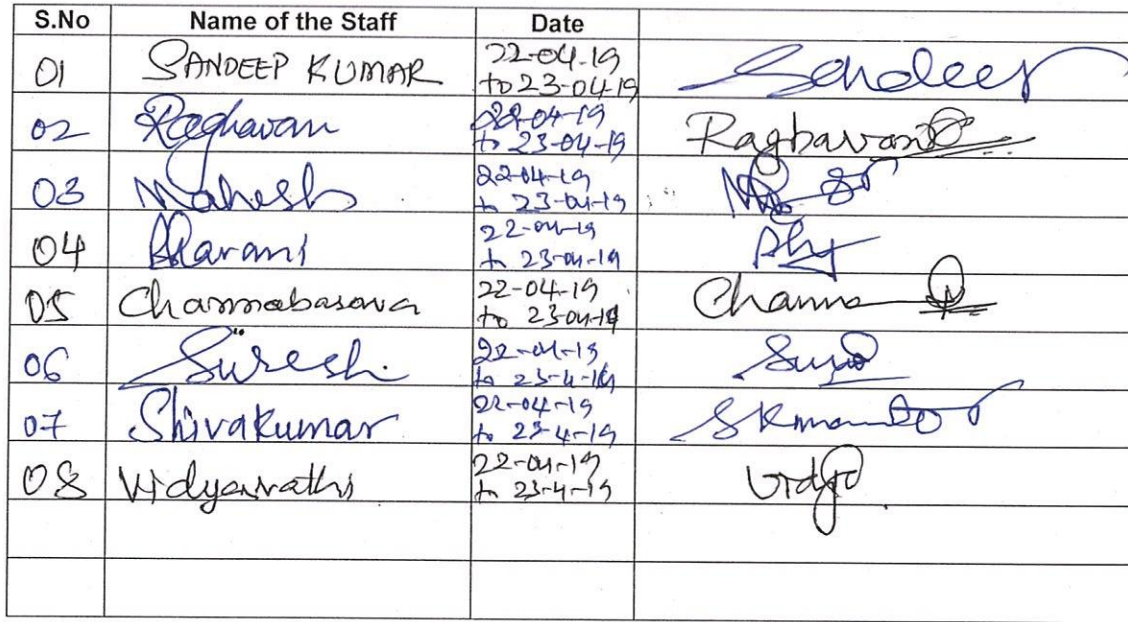 S.No Name of the Staff Date
01 SANDEEP KUMAR 22-04-19 Sandeep
to 23-04-19
02 Raghavan 22-04-19 Raghavan
to 23-04-19
03 Mahesh 22-04-19
to 23-04-19
04 Dharani 22-04-19
to 23-04-19
05 Channabasava 22-04-19 Channa
to 23-04-19
06 Suresh 22-04-19
to 23-4-19
07 Shivakumar 22-04-19
to 23-4-19
08 Vidyavathi 22-04-19
to 23-4-19